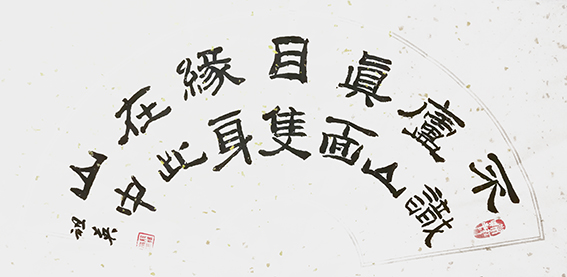 不識
廬山
眞面
目隻
緣身
在此
山中